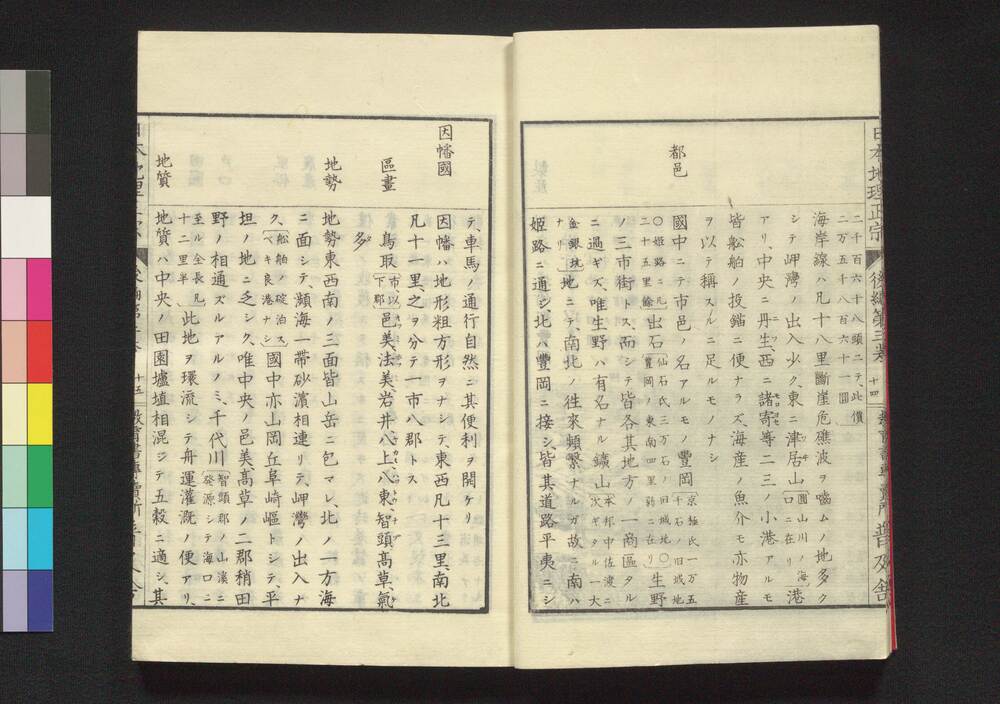 日本地理正宗
後編第三卷
十四
普及舍
二千百六十八頭ニテ、此價
二万五千八百六十一圓、
海岸線ハ凡十八里、斷崖危礁波ヲ嚙ムノ地多ク
シテ岬灣ノ出入少ク、東ニ津居山〔圓山川ノ海口ニ在リ〕港
アリ、中央ニ丹生、西ニ諸寄等二三ノ小港アルモ
皆船舶ノ投錨ニ便ナラズ、海産ノ魚介モ亦物産
ヲ以テ稱スルニ足ルモノナシ
都邑
國中ニテ市邑ノ名アルモノ豐岡〔京極氏一万五千石ノ旧城地
〇姫路ニ凡二十五里餘〕出石〔仙石氏三万石ノ旧城地〇豐岡ノ東南四里許ニ在リ〕生野
ノ三市街トス、而シテ皆各其地方ノ一商區タル
ニ過ギズ、唯生野ハ有名ナル鑛山〔本邦中佐渡ニ次ギタル一大
金銀坑ナリ〕地ニテ、南北ノ往來頻繁ナルガ故ニ南ハ
姫路ニ通シ北ハ豐岡ニ接シ、皆其道路平夷ニシ
テ、車馬ノ通行自然ニ其便利ヲ開ケリ
因幡國
因幡ハ地形粗方形ヲナシテ、東西凡十三里、南北
凡十一里、之ヲ分テ一市八郡トス
區畫
鳥取〔市、以下郡〕邑美、法美、岩井、八上、八東、智頭、高草、氣
多
地勢
地勢東西南ノ三面皆山岳ニ包マレ、北ノ一方海
ニ面シテ、瀕海一帶砂濱相連リテ、岬灣ノ出入ナ
ク、〔船舶ノ碇泊スベキ良港ナシ〕國中亦山岡丘阜崎嶇トシテ、平
坦ノ地ニ乏シク、唯中央ノ邑美、高草ノ二郡稍田
野ノ相通ズルアルノミ、千代川〔智頭郡ノ山溪ニ發源シテ海口ニ
至ル全長凡十二里半〕此地ヲ環流シテ舟運灌漑ノ便アリ、
地質
地質ハ中央ノ田園壚埴相混ジテ五穀ニ適シ、其
十五